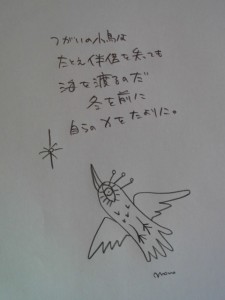 つがいの小鳥は
たとえ伴侶を失っても
海を渡るのだ
冬を前に
自らの メをたよりに。